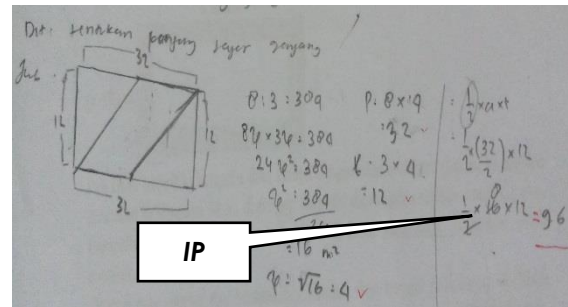 Dit: tentukan panjang jajar genjang
Jwb.
32
12
12
32
8:3 = 384
8y × 3y = 384
24y² = 384
y² = 384
= 16 m²
y = √16 = 4
p. 8 × 4
= 32
l = 3 × 4
= 12
= 1/2 × a × t
= 1/2 × (32/2) × 12
1/2 × 16 × 12 = 96
8
IP